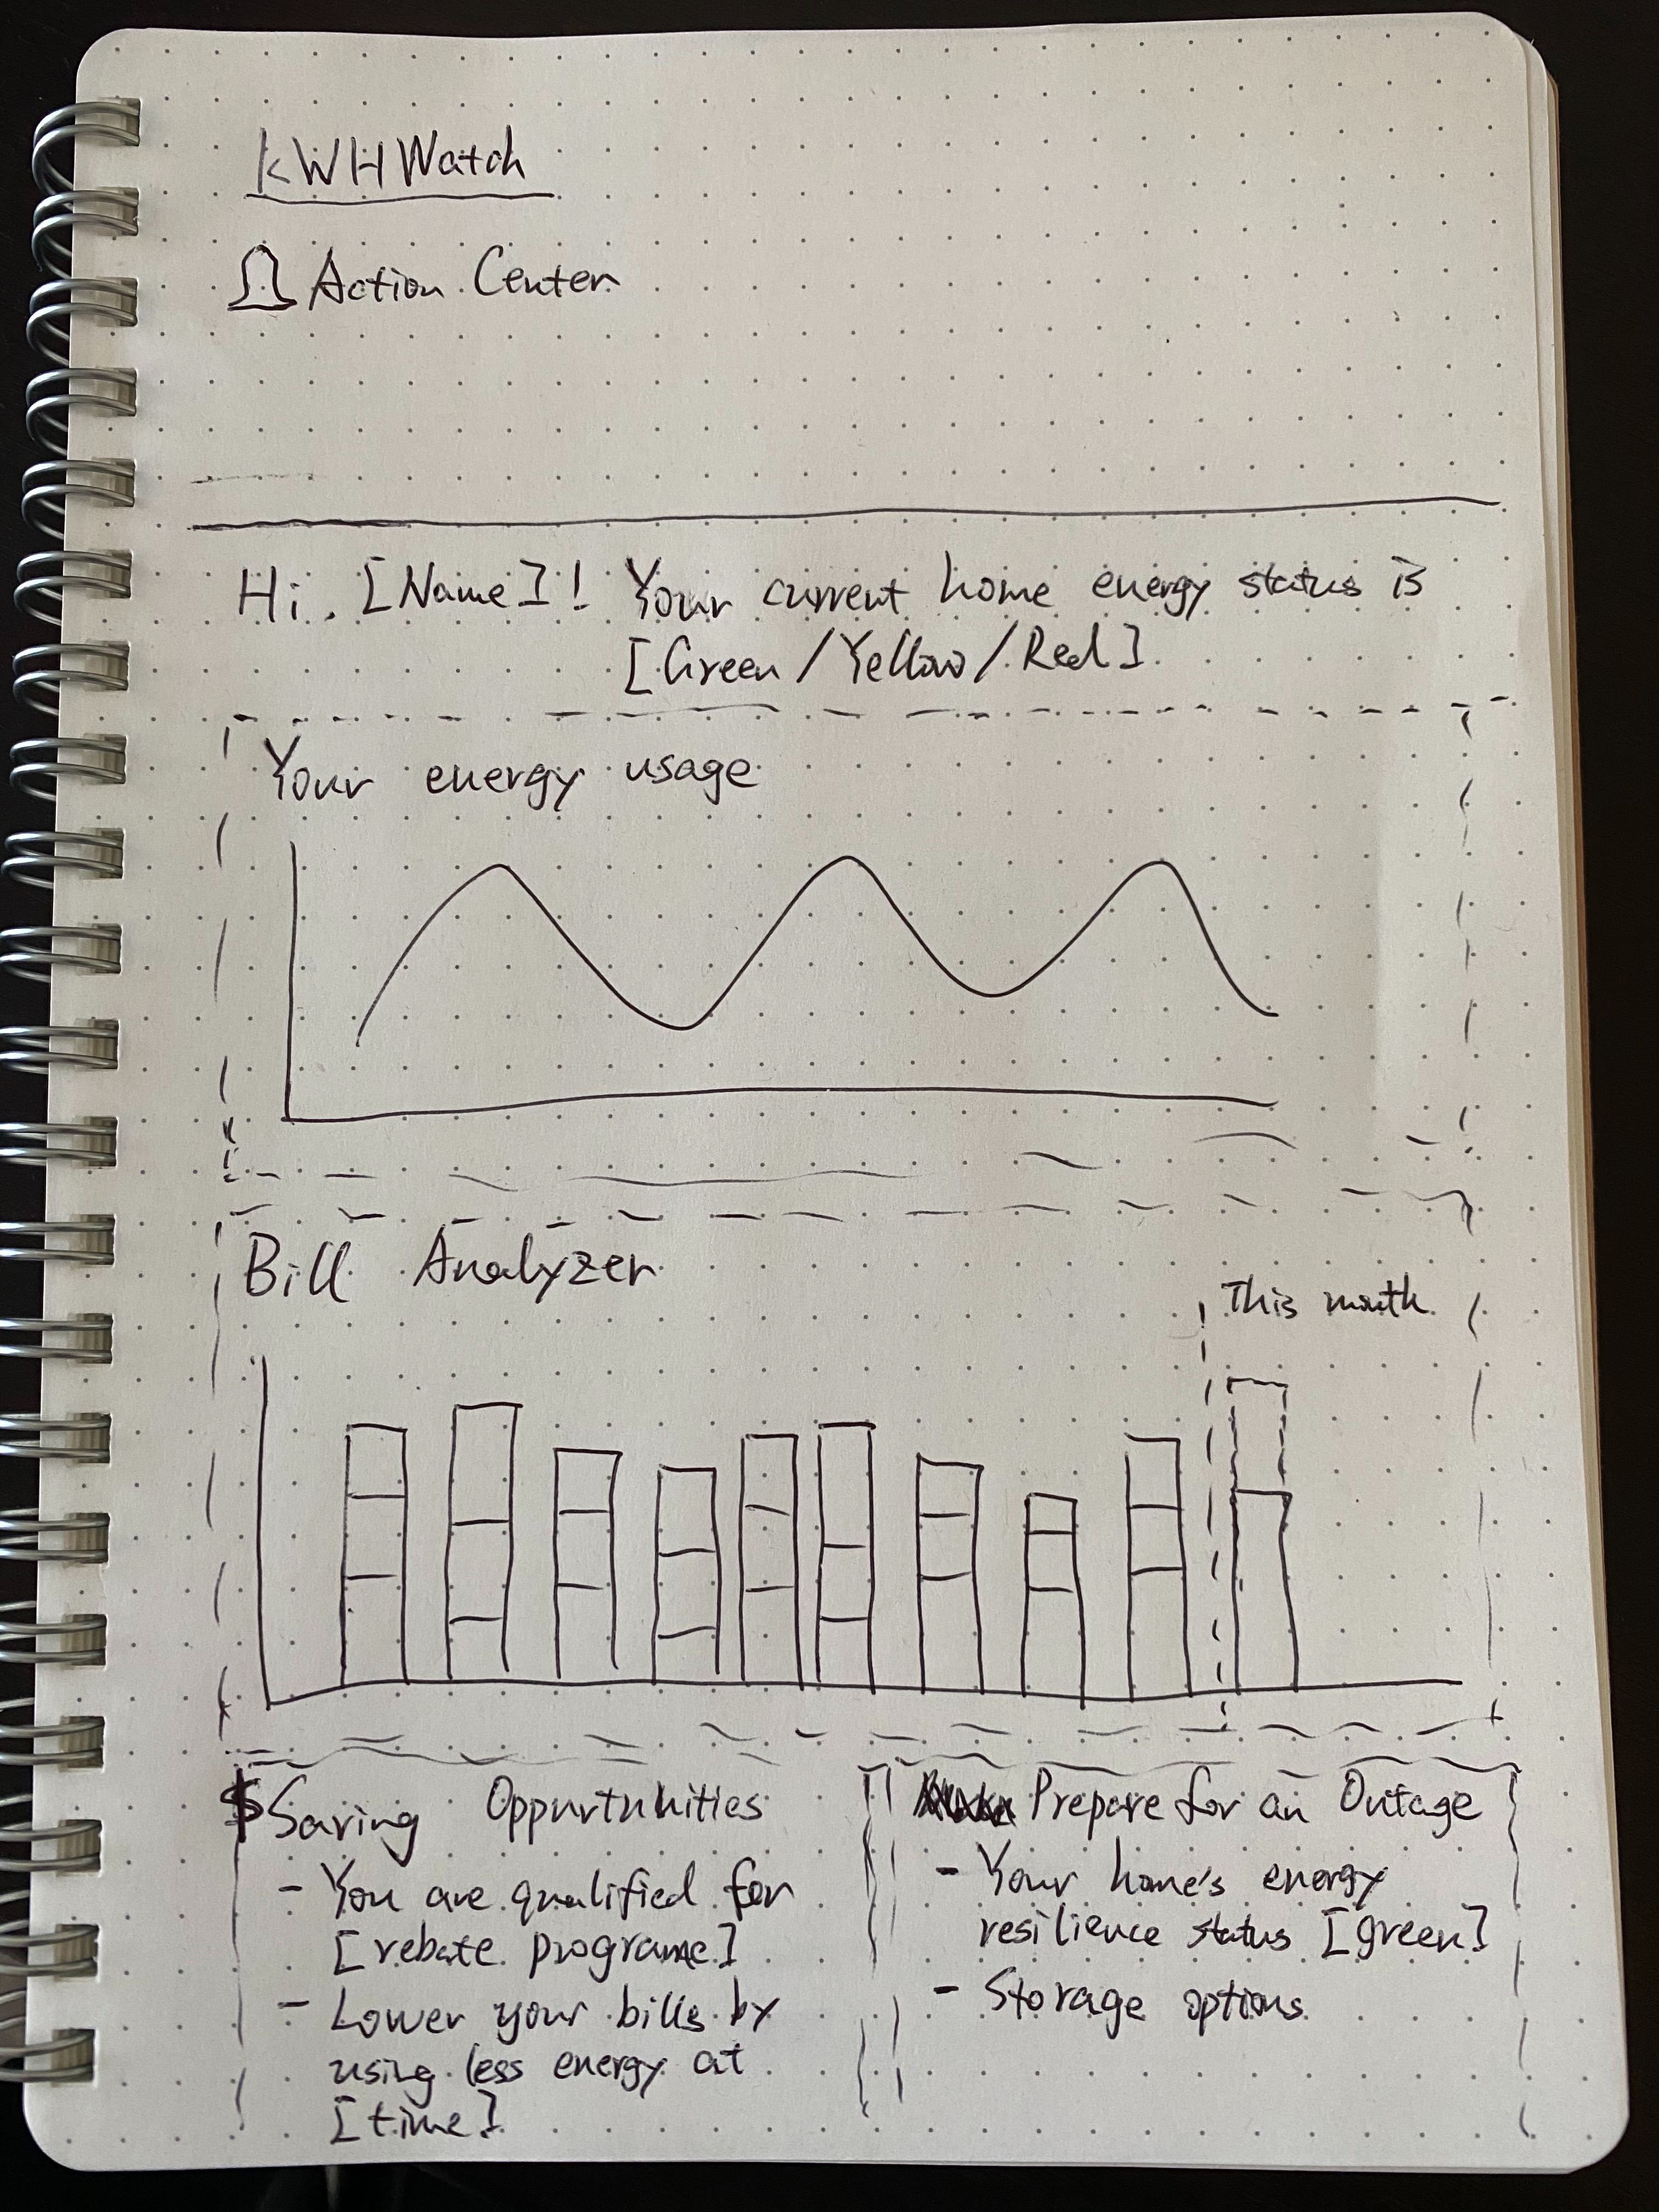 kWHWatch
Action Center
Hi, [Name]! Your current home energy status is
[Green/Yellow/Red]
Your energy usage
Bill Analyzer
This month
$ Saving Opportunities
- You are qualified for
[rebate programe]
- Lower your bills by
using less energy at
[time]
Prepare for an Outage
- Your home's energy
resilience status [green]
- Storage options